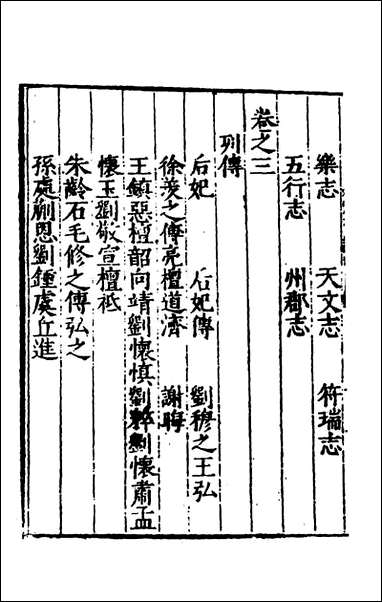 樂志 天文志 符瑞志
五行志 州郡志
卷之三
列傳
后妃 后妃傳 劉穆之王弘
徐羨之傅亮檀道濟 謝晦
王鎮惡檀韶向靖劉懷慎劉粹劉懷肅孟
懷玉劉敬宣檀祗
朱齡石毛修之傅弘之
孫處蒯恩劉鍾虞丘進